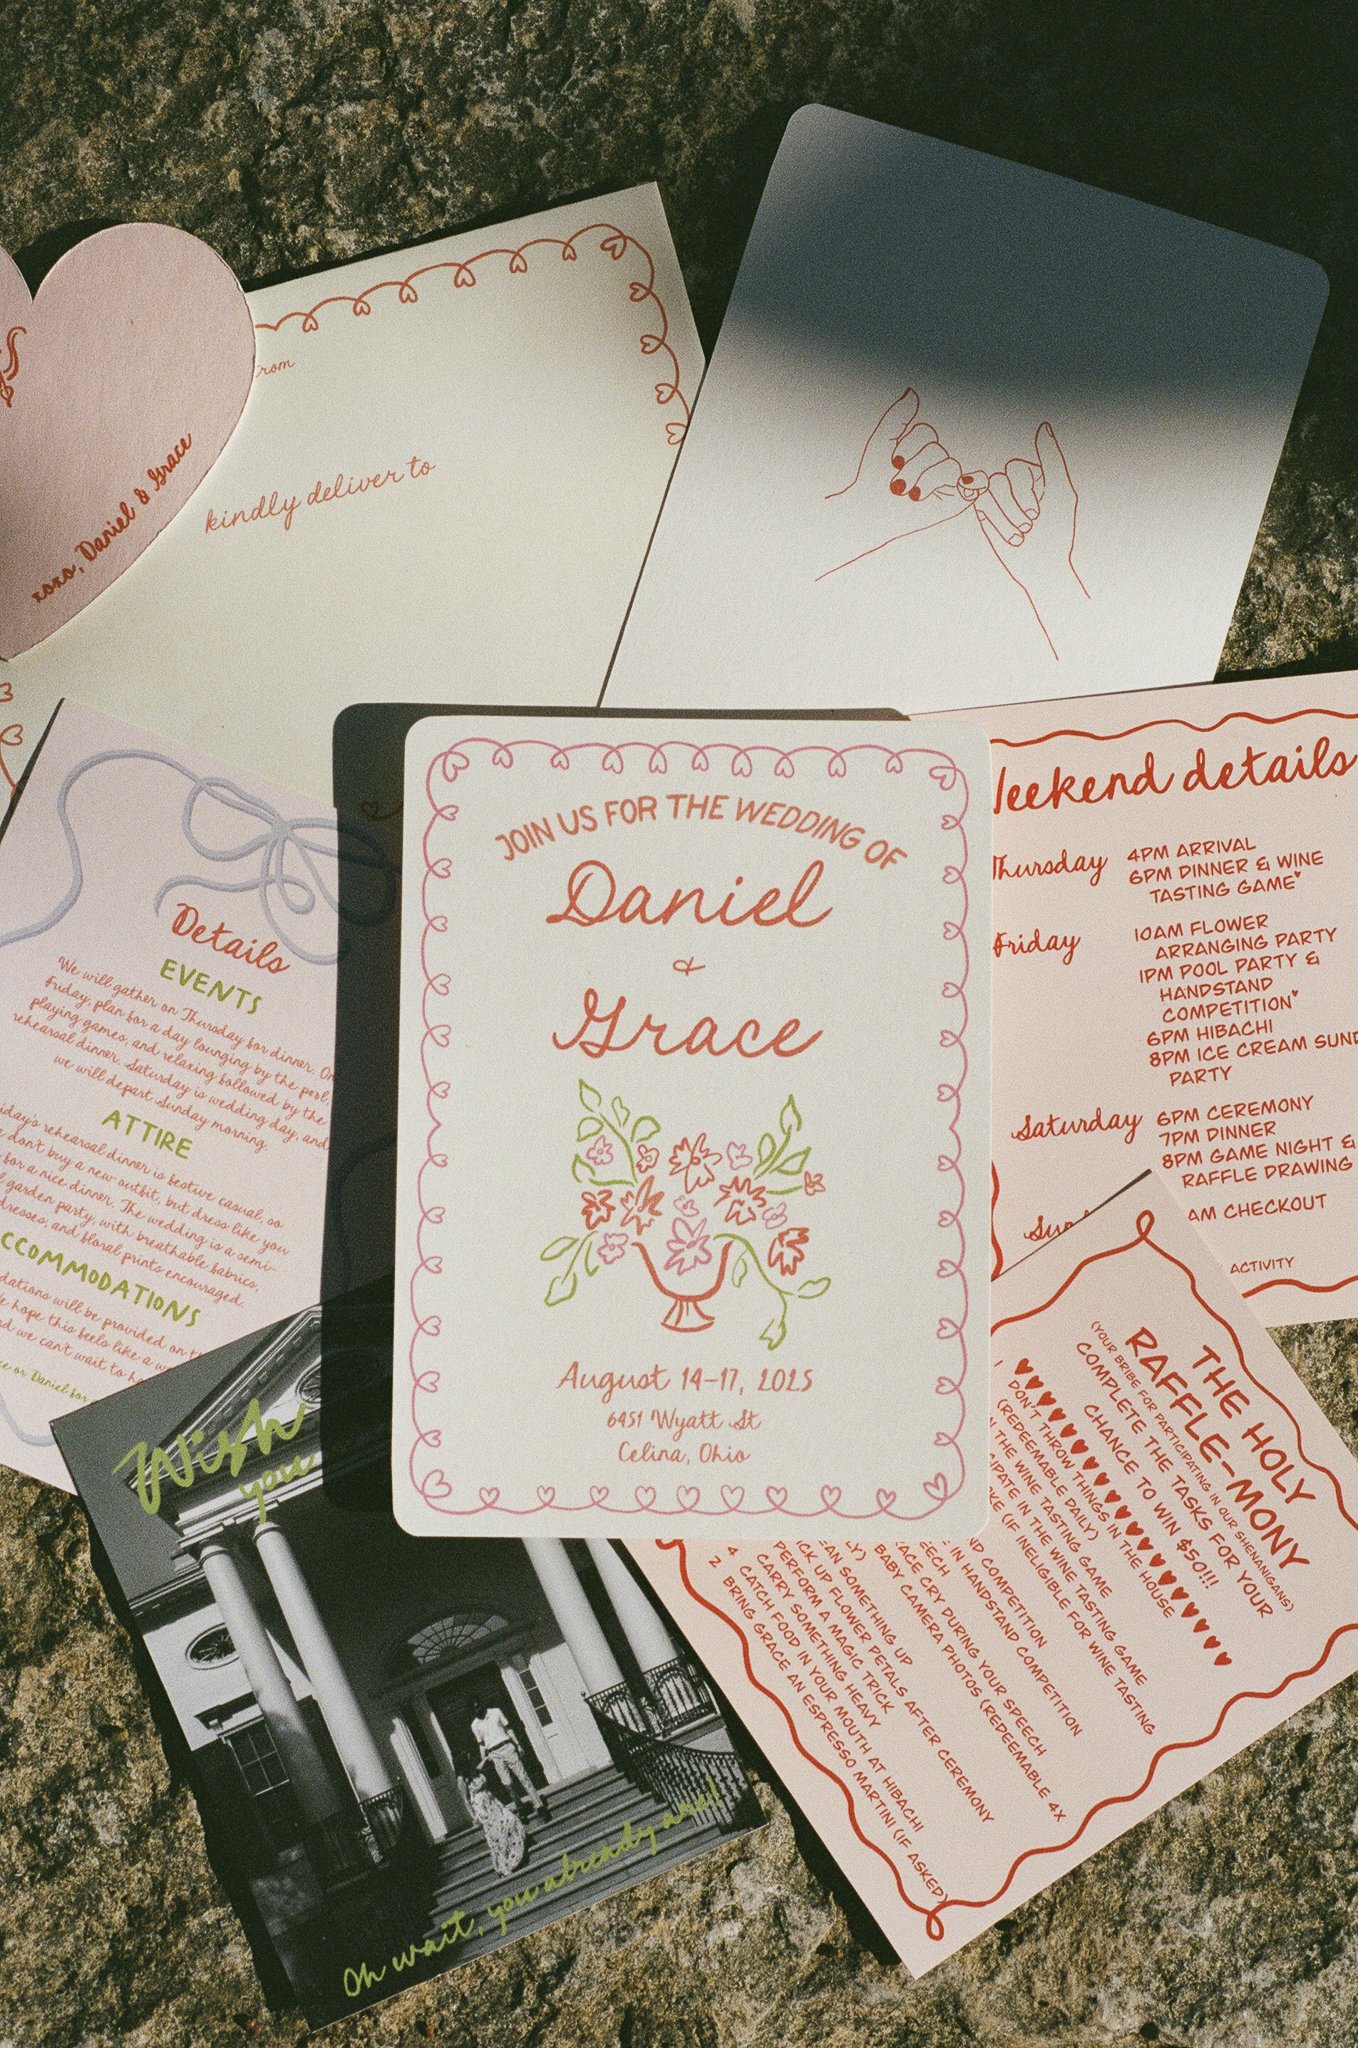 from
kindly deliver to
xoxo, Daniel & Grace
JOIN US FOR THE WEDDING OF
Daniel
&
Grace
August 14-17, 2025
6451 Wyatt St
Celina, Ohio
Details
EVENTS
We will gather on Thursday for dinner. On
Friday, plan for a day lounging by the pool,
playing games, and relaxing followed by the
rehearsal dinner. Saturday is wedding day, and
we will depart Sunday morning.
ATTIRE
rehearsal dinner is festive casual, so
don't buy a new outfit, but dress like you
for a nice dinner. The wedding is a semi-
garden party, with breathable fabrics,
dresses, and floral prints encouraged.
CCOMMODATIONS
dations will be provided on
hope this feels like a
and we can't wait to
or Daniel for
Weekend details
Thursday
4PM ARRIVAL
6PM DINNER & WINE
TASTING GAME♥
Friday
10AM FLOWER
ARRANGING PARTY
1PM POOL PARTY &
HANDSTAND
COMPETITION♥
6PM HIBACHI
8PM ICE CREAM SUND
PARTY
Saturday
6PM CEREMONY
7PM DINNER
8PM GAME NIGHT &
RAFFLE DRAWING
Sun
AM CHECKOUT
ACTIVITY
THE HOLY
RAFFLE-MONY
(YOUR BRIBE FOR PARTICIPATING IN OUR SHENANIGANS)
COMPLETE THE TASKS FOR YOUR
CHANCE TO WIN $50!!!
DON'T THROW THINGS IN THE HOUSE
(REDEEMABLE DAILY)
THE WINE TASTING GAME
CIPATE IN THE WINE TASTING GAME
(IF INELIGIBLE FOR WINE TASTING
COMPETITION
IN HANDSTAND COMPETITION
EECH
ACE CRY DURING YOUR SPEECH
BABY CAMERA PHOTOS (REDEEMABLE 4X
LY)
EAN SOMETHING UP
ICK UP FLOWER PETALS AFTER CEREMONY
PERFORM A MAGIC TRICK
CARRY SOMETHING HEAVY
4 CATCH FOOD IN YOUR MOUTH AT HIBACHI
2 BRING GRACE AN ESPRESSO MARTINI (IF ASKED)
Wish
you
Oh wait, you already are!